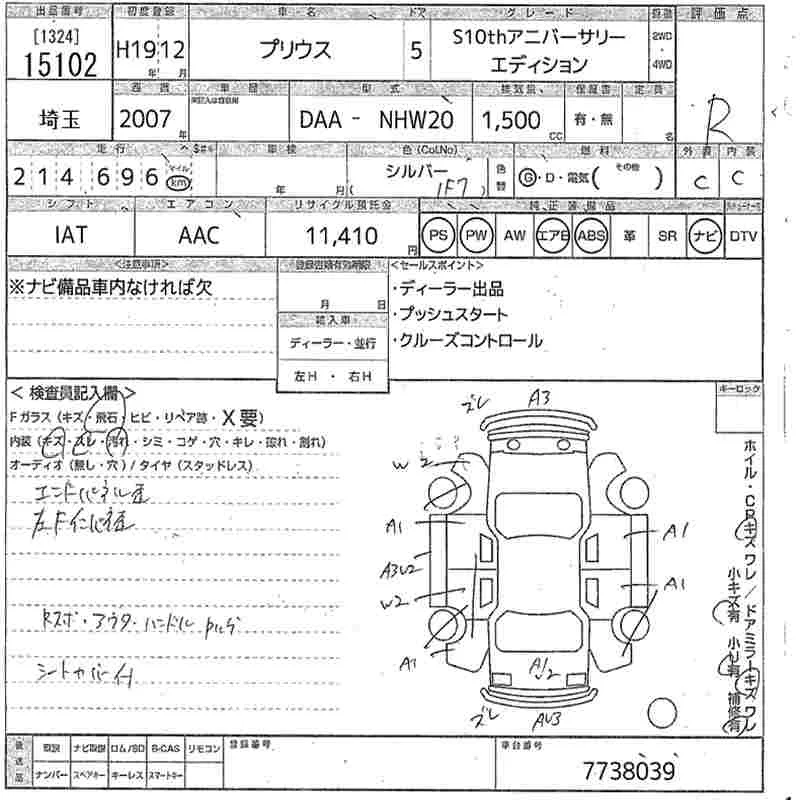 出品番号 初度登録 車・名 ドア グレード 駆動 評価点
[1324]
15102
H19 12
年 月
プリウス
5
S10thアニバーサリー
エディション
2WD
・
4WD
R
埼玉
年週
2007 年
車歴
型式
DAA - NHW20
排気量
1,500 CC
保証書
有・無
定員
名
外装 内装
C C
走行 $#*
214696 マイル km
車検
年 月
色(Col.No)
シルバー
(1F7)
色替
燃料
G・D・電気( その他 )
シフト エアコン リサイクル預託金 純正装備品
IAT AAC 11,410 円
PS PW AW エアB ABS 革 SR ナビ DTV
<注意事項>
※ナビ備品車内なければ欠
登録書類有効期限
月 日
輸入車
ディーラー・並行
左H・右H
<セールスポイント>
・ディーラー出品
・プッシュスタート
・クルーズコントロール
< 検査員記入欄 >
Fガラス(キズ・飛石・ヒビ・リペア跡・X要)
内装(キズ・スレ・汚れ・シミ・コゲ・穴・キレ・破れ・割れ)
オーディオ(無し・穴)/タイヤ(スタッドレス)
エンドパネル歪
左Fインパネ歪
Rスポ・アウターハンドル
シートカバー付
キーロック
ズレ A3
W2
A1 A1
A3U2
W2 A1
A1
A1
U2
ズレ AU3
ホイル・CPキズ ワレ/ドアミラーキズ ワレ
小キズ有 小U有 補修有
後送品
取説 ナビ取説 ロム/SD B-CAS リモコン
ナンバー スペアキー キーレス スマートキー
登録番号
車台番号
7738039